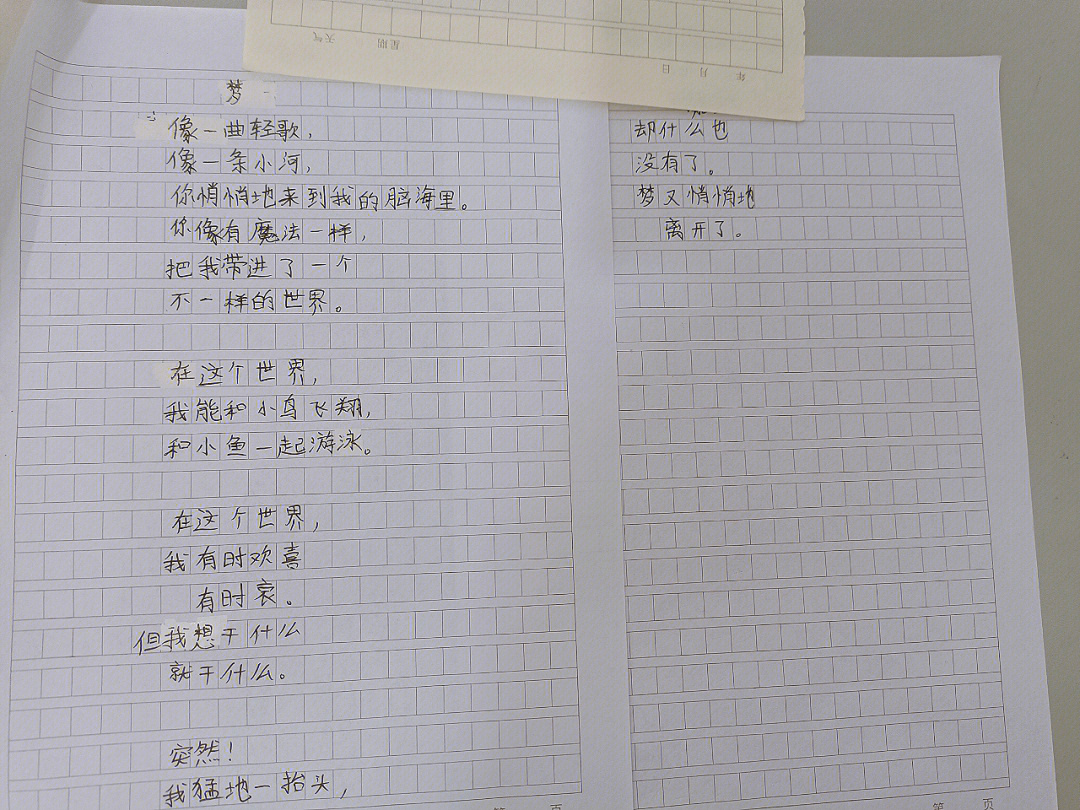 天气
星期
日
月
年
梦
像一曲轻歌，
像一条小河，
你悄悄地来到我的脑海里。
你像有魔法一样，
把我带进了一个
不一样的世界。
在这个世界，
我能和小鸟飞翔，
和小鱼一起游泳。
在这个世界，
我有时欢喜
有时哀。
但我想干什么
就干什么。
突然！
我猛地一抬头，
第 页
却什么也
没有了。
梦又悄悄地
离开了。
第 页